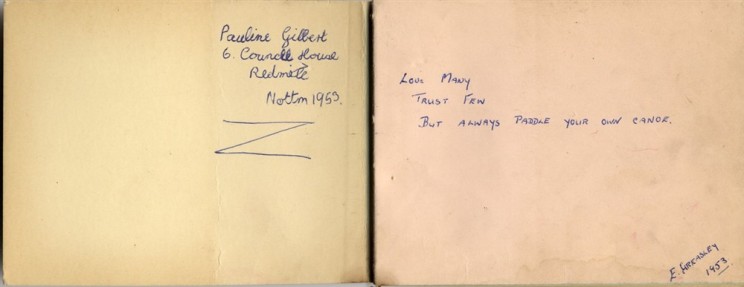 Pauline Gilbert
6. Council House
Redmile
Nottm 1953.
Love Many
Trust Few
But always paddle your own canoe.
E.
1953.